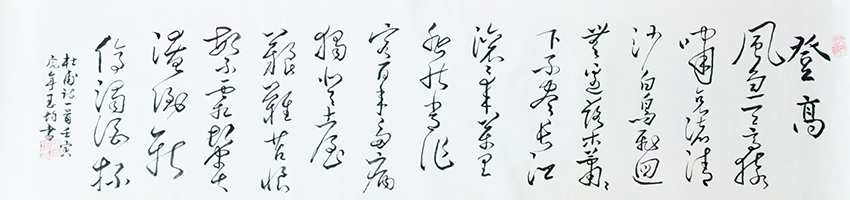 登高
風急天高猿
嘯哀渚清
沙白鳥飛迴
無邊落木蕭蕭
下不盡長江
滾滾來萬里
悲秋常作
客百年多病
獨登臺
艱難苦恨
繁霜鬢
潦倒新
停濁酒杯
杜甫詩一首壬寅
虎年王均書